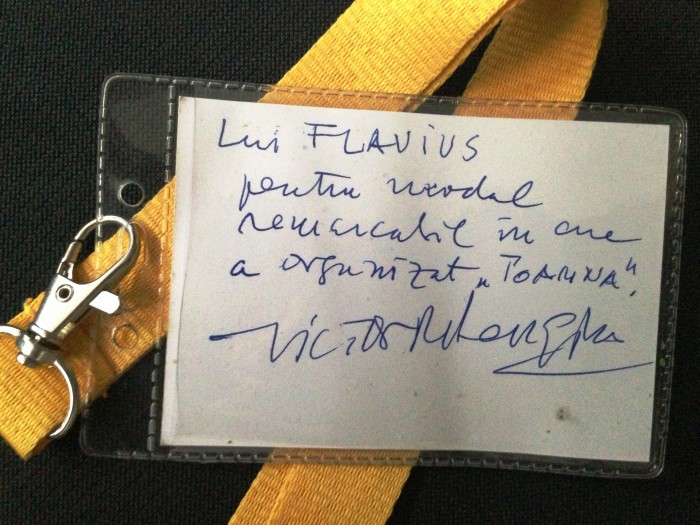 Lui FLAVIUS
pentru modul
remarcabil în care
a organizat „TOAMNA".
Victor Rebengiuc